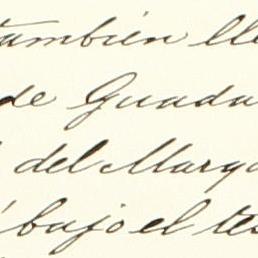 también lle
de Guada
del Marqu
bajo el tes